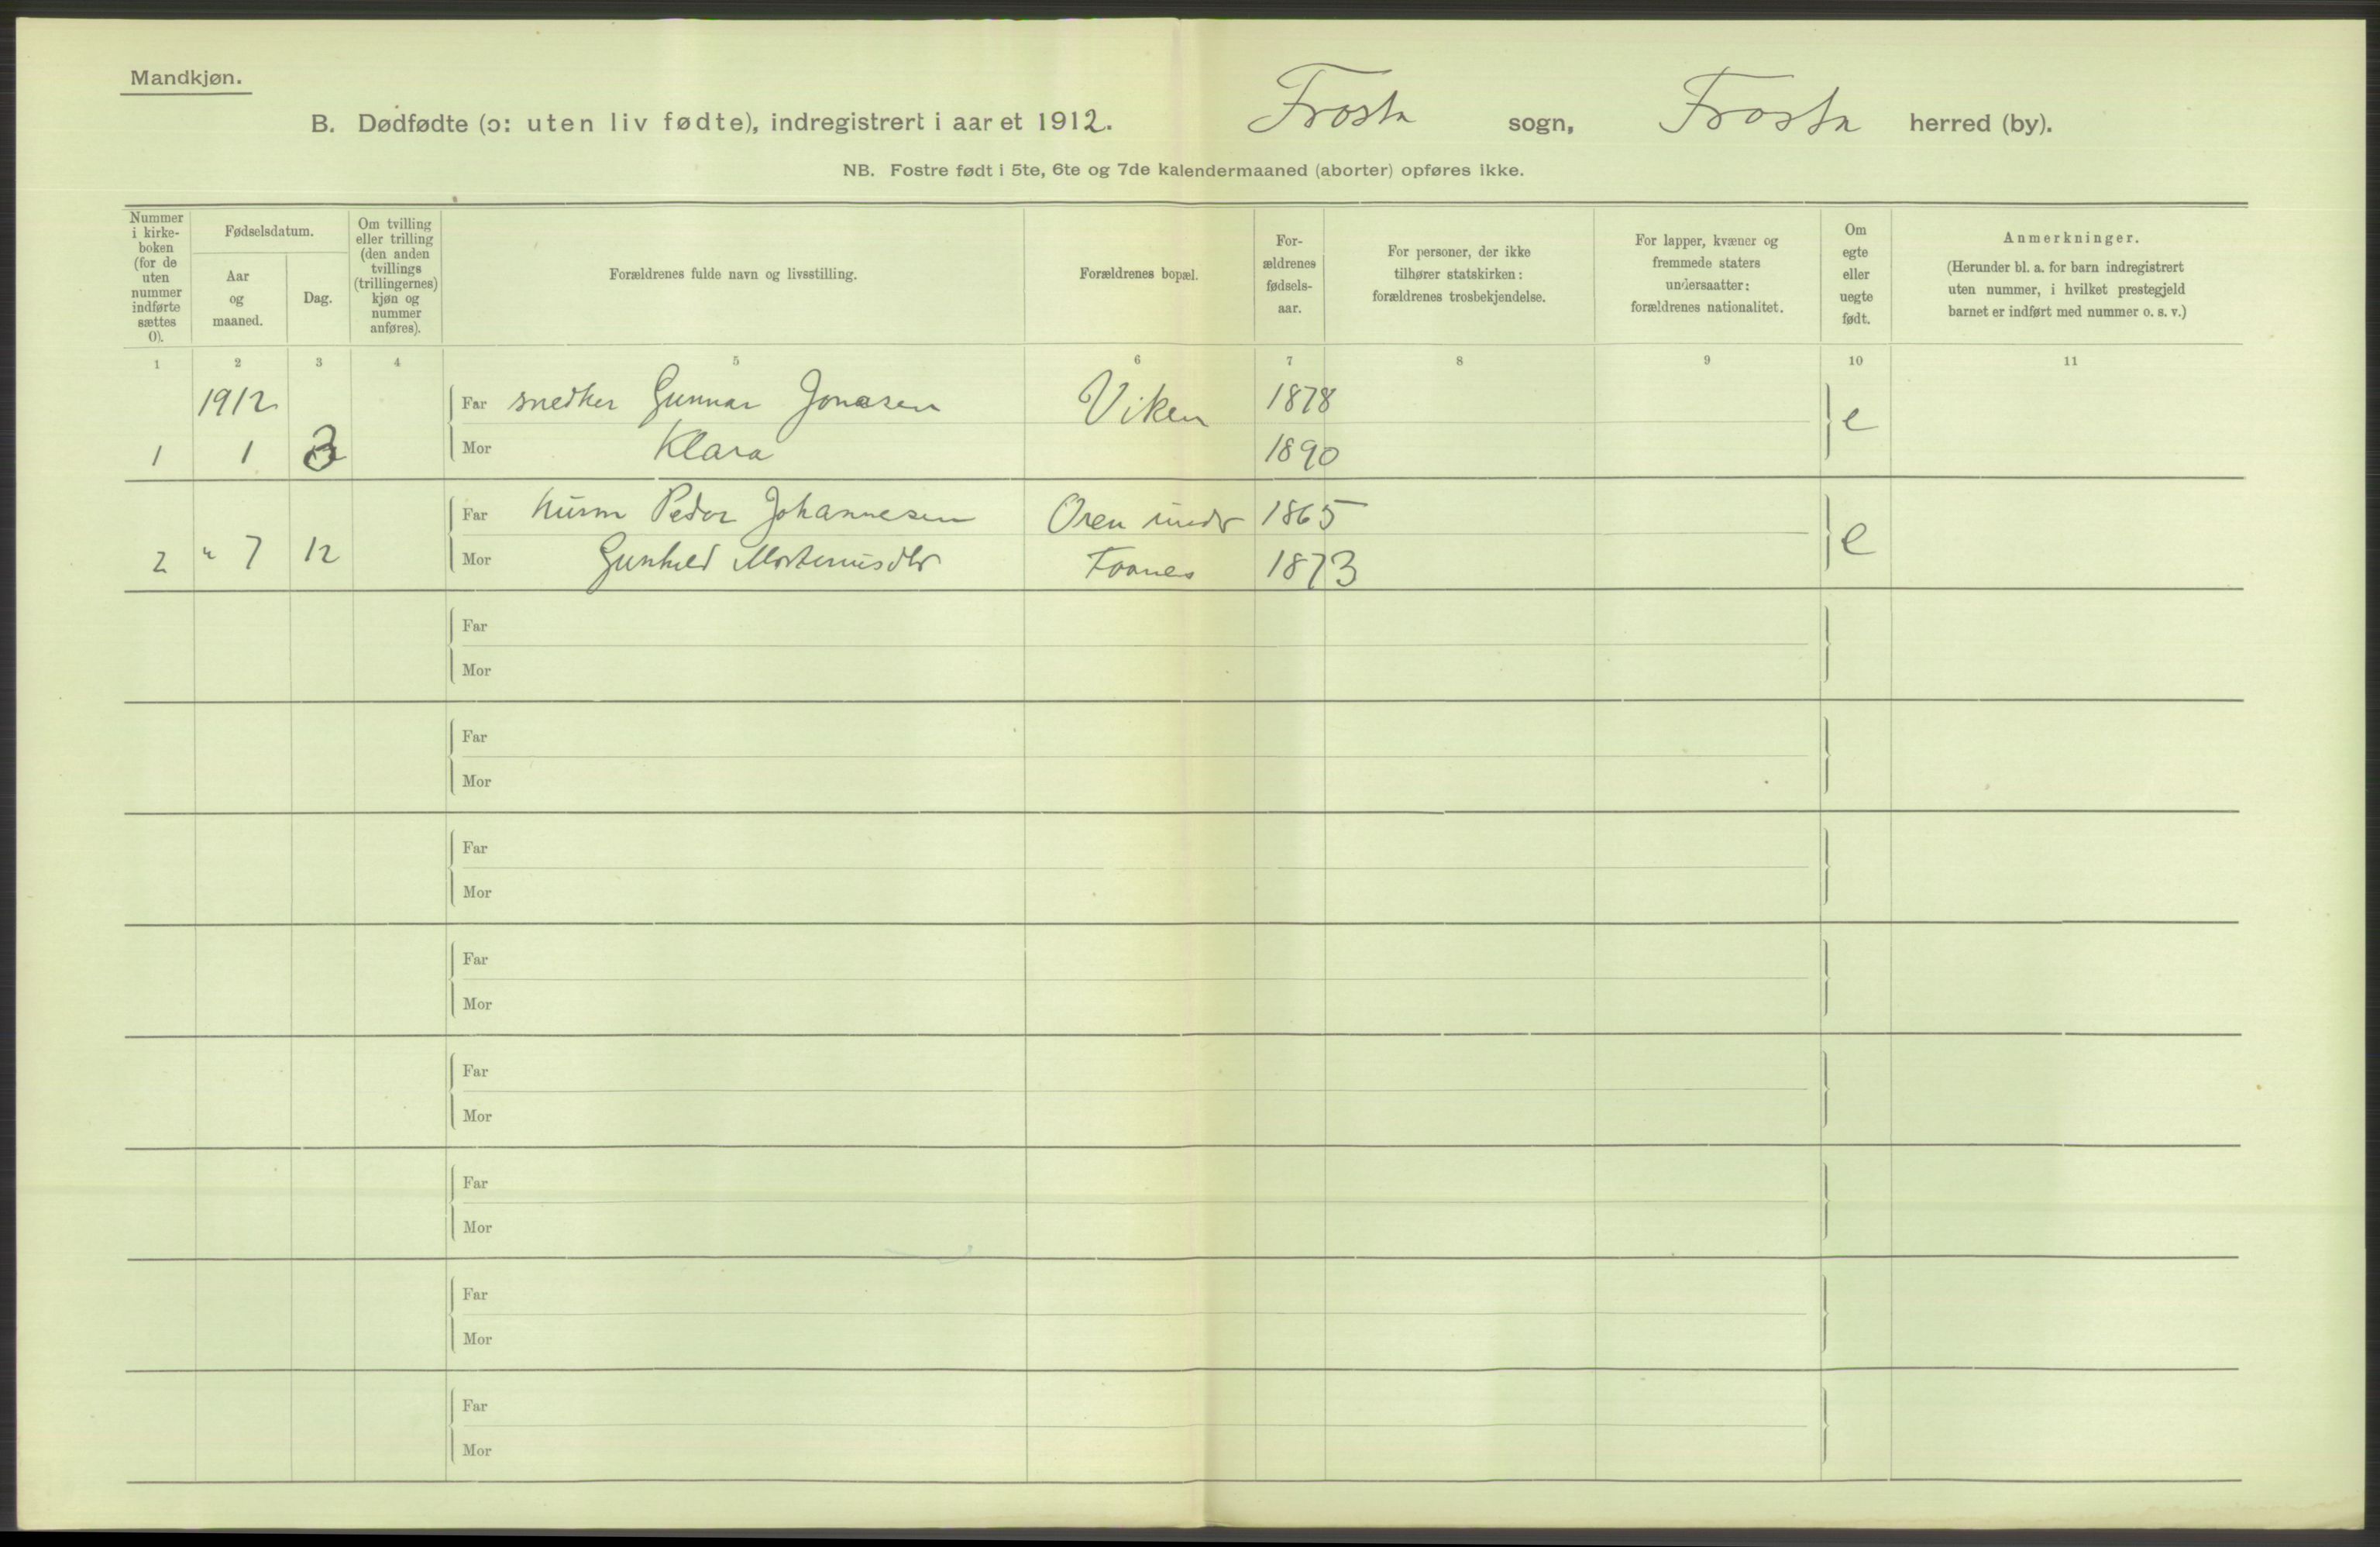 Mandkjøn.
B. Dødfødte (ɔ: uten liv fødte), indregistrert i aaret 1912. Frosta sogn, Frosta herred (by).
NB. Fostre født i 5te, 6te og 7de kalendermaaned (aborter) opføres ikke.
Nummer i kirke-boken (for de uten nummer indførte sættes 0).
Fødselsdatum.
Aar og maaned.
Dag.
Om tvilling eller trilling (den anden tvillings (trillingernes) kjøn og nummer anføres).
Forældrenes fulde navn og livsstilling.
Forældrenes bopæl.
For-ældrenes fødsels-aar.
For personer, der ikke tilhører statskirken: forældrenes trosbekjendelse.
For lapper, kvæner og fremmede staters undersaatter: forældrenes nationalitet.
Om egte eller uegte født.
Anmerkninger.
(Herunder bl. a. for barn indregistrert uten nummer, i hvilket prestegjeld barnet er indført med nummer o. s. v.)
1 2 3 4 5 6 7 8 9 10 11
1912 Far snedker Gunnar Jonasen Viken 1878 e
1 1 3 Mor Klara 1890
Far husm Peder Johannesen Oren under 1865 e
2 " 7 12 Mor Gunhild Mortinusdtr 1873
Far
Mor
Far
Mor
Far
Mor
Far
Mor
Far
Mor
Far
Mor
Far
Mor
Far
Mor